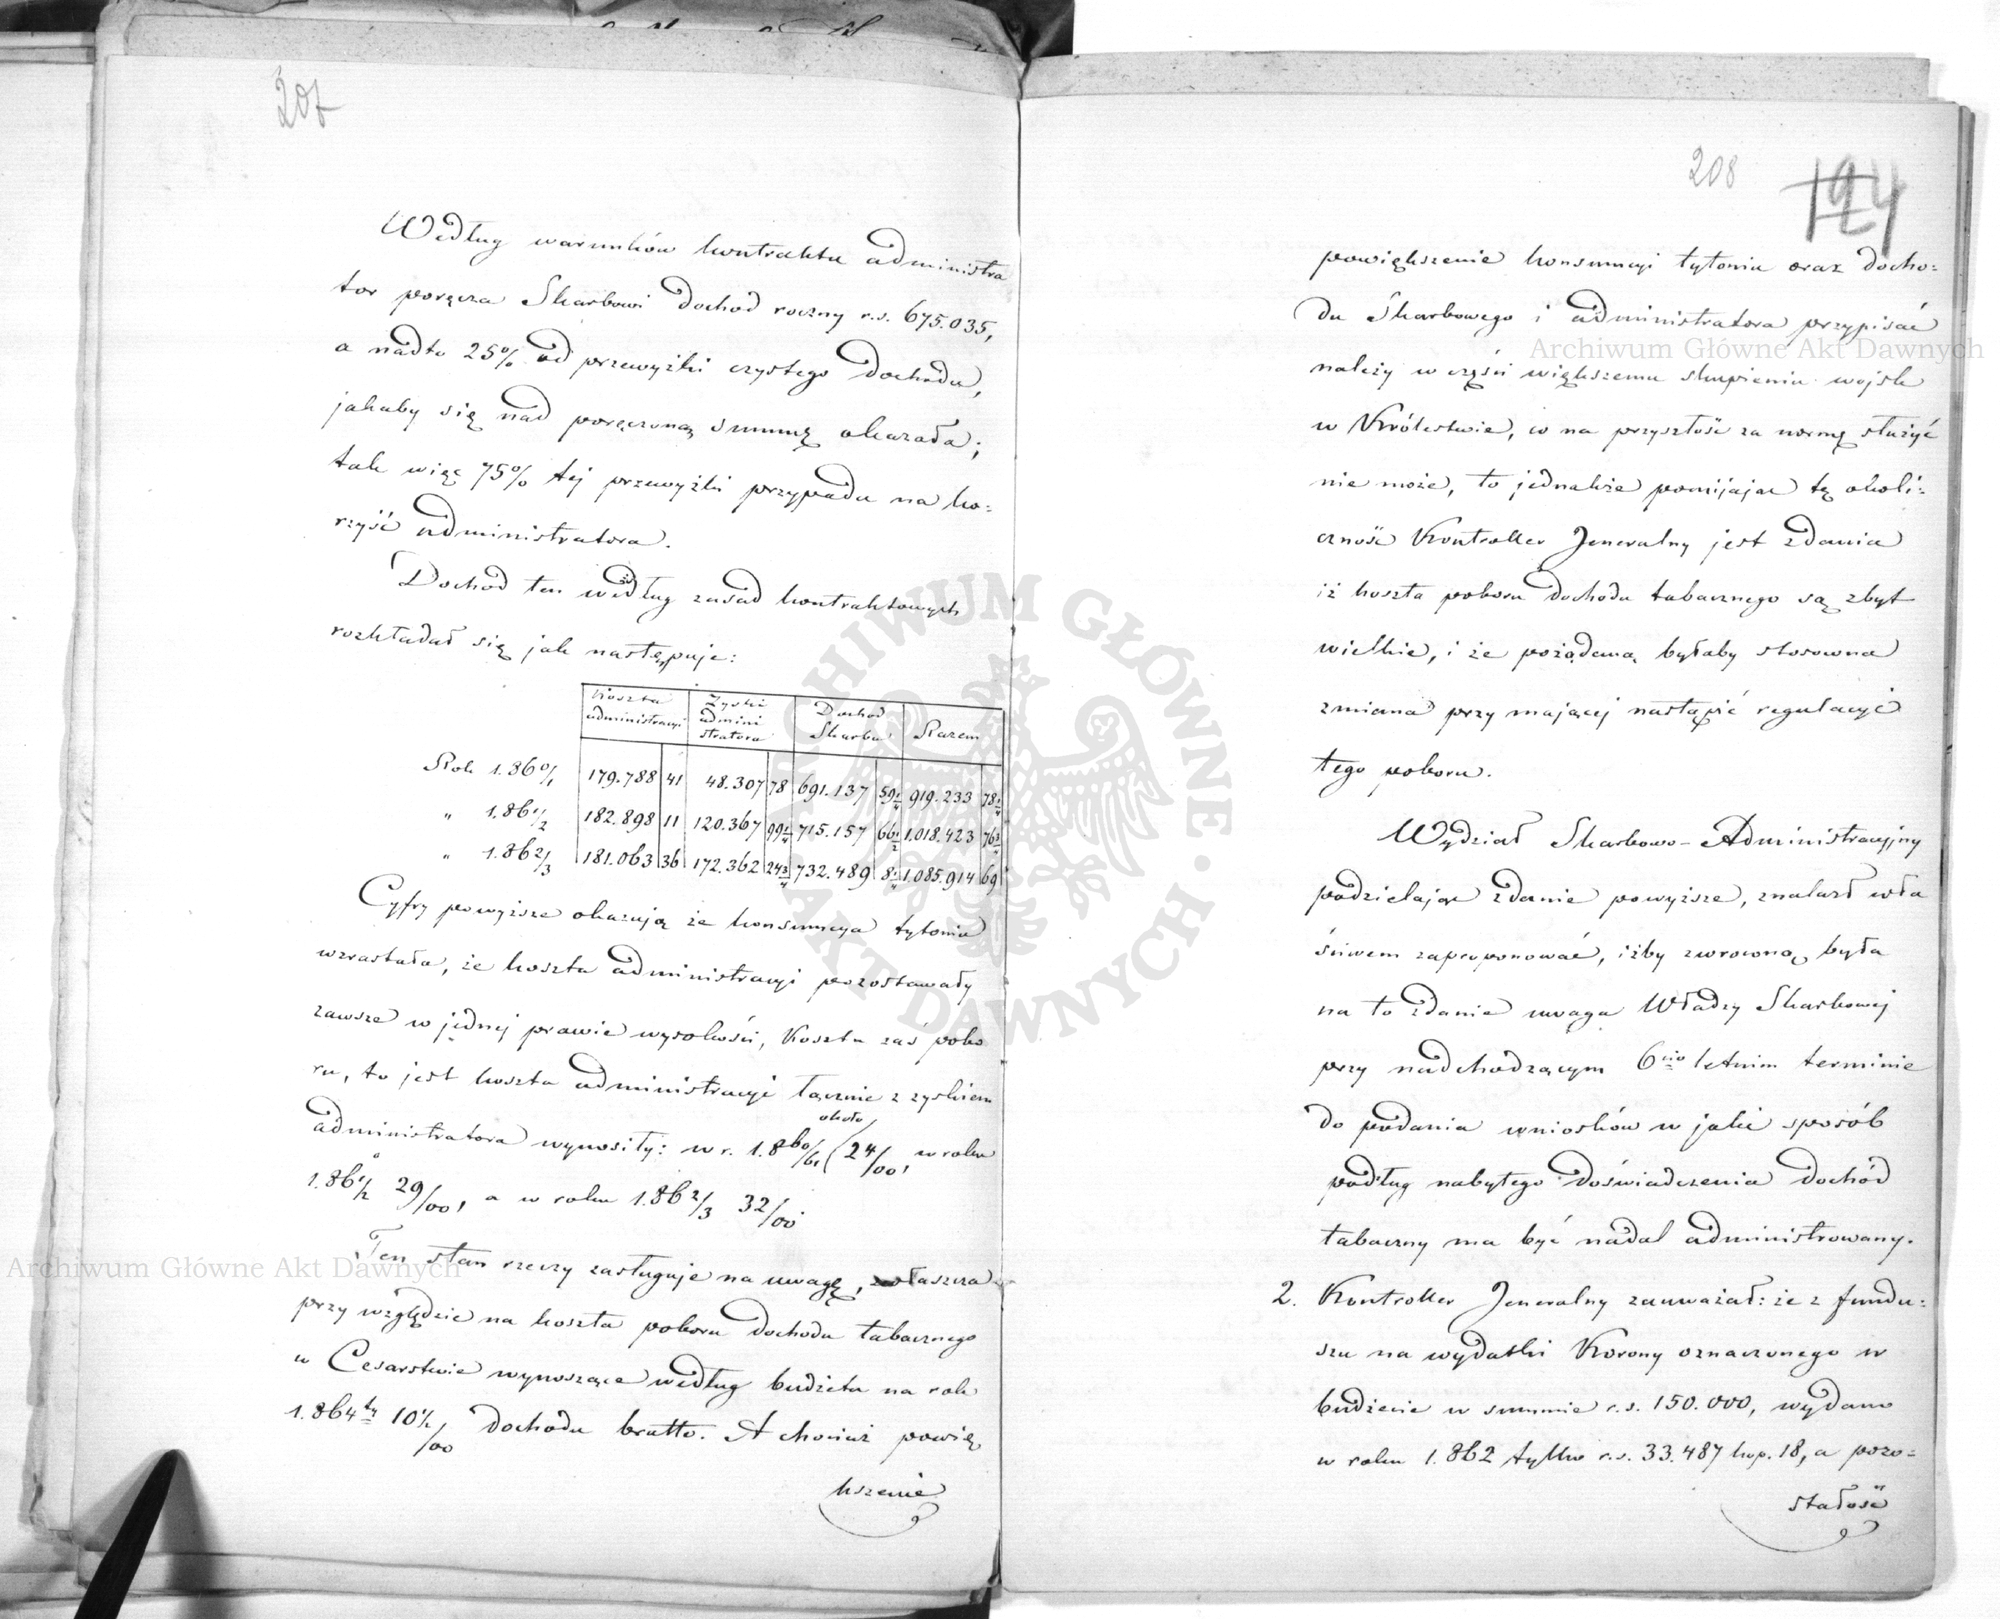 207
Według warunków kontraktu administra
tor poręcza Skarbowi dochód roczny r.s. 675.035,
a nadto 25% od przewyżki czystego dochodu,
jakaby się nad poręczoną summę okazała;
tak więc 75% tej przewyżki przypada na ko=
rzyść administratora.
Dochód ten według zasad kontraktowych
rozkładał się jak następuje:
Koszta administracyi | Zyski admini stratora | Dochód Skarbu | Razem
Rok 1.860/1 | 179.788 | 41 | 48.307 | 78 | 691.137 | 59 1/4 | 919.233 | 78 1/4
" 1.861/2 | 182.898 | 11 | 120.367 | 99 1/4 | 715.157 | 66 1/2 | 1.018.423 | 76 3/4
" 1.862/3 | 181.063 | 36 | 172.362 | 24 3/4 | 732.489 | 8 1/4 | 1.085.914 | 69
Cyfry powyższe okazują że konsumcya tytoniu
wzrastała, że koszta administracyi pozostawały
zawsze w jednej prawie wysokości, Koszta zaś pobo
ru, to jest koszta administracyi łącznie z zyskiem
około
administratora wynosiły: w r. 1.860/61 (24/00, w roku
1.861/2 29/00, a w roku 1.862/3 32/00.
Ten stan rzeczy zasługuje na uwagę, zwłaszcza
przy względzie na koszta poboru dochodu tabacznego
w Cesarstwie wynoszące według budżetu na rok
1.864ty 10 1/2/00 dochodu brutto. A chociaż powię
kszenie
208
124
powiększenie konsumcyi tytoniu oraz docho=
du Skarbowego i administratora przypisać
należy w części większemu skupieniu wojsk
w Królestwie, co na przyszłość za normę służyć
nie może, to jednakże pomijając tę okoli=
czność Kontroller Jeneralny jest zdania
iż koszta poboru dochodu tabacznego są zbyt
wielkie, i że pożądaną byłaby stosowna
zmiana przy mającej nastąpić regulacyi
tego poboru.
Wydział Skarbowo-Administracyjny
podzielając zdanie powyższe, znalazł wła
ściwem zaproponować, iżby zwróconą była
na to zdanie uwaga Władzy Skarbowej
przy nadchodzącym 6cio letnim terminie
do podania wniosków w jaki sposób
podług nabytego doświadczenia dochód
tabaczny ma być nadal administrowany.
2. Kontroller Jeneralny zauważał: że z fundu=
szu na wydatki Korony oznaczonego w
budżecie w summie r.s. 150.000, wydano
w roku 1.862 tylko r.s. 33.487 kop. 18, a pozo=
stałość
Archiwum Główne Akt Dawnych
Archiwum Główne Akt Dawnych
ARCHIWUM GŁÓWNE · AKT DAWNYCH ·